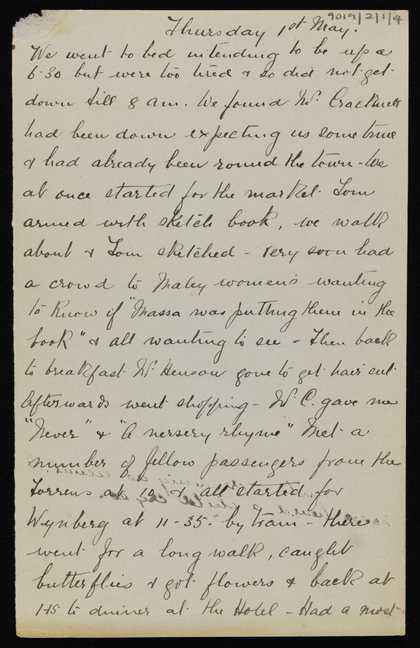 9019/2/1/4
Thursday 1st May.
We went to bed intending to be up a
6.30 but were too tired & so did not get
down till 8 am. We found Mr. Cracknell
had been down expecting us some time
& had already been round the town - We
at once started for the market. Tom
armed with sketch book, we walk
about & Tom sketched - very soon had
a crowd to Maley women's wanting
to know if "Massa was putting them in the
book" & all wanting to see - Then back
to breakfast Mr Henson gone to get hair cut
Afterwards went shopping - Mr C. gave me
"Never" & "A nersery rhyme" Met a
number of fellow passengers from the
Torrens at 12 & all started for
Wynberg at 11-35 - by train - there
went for a long walk, caught
butterflies & got flowers & back at
1.45 to dinner at the Hotel - Had a most